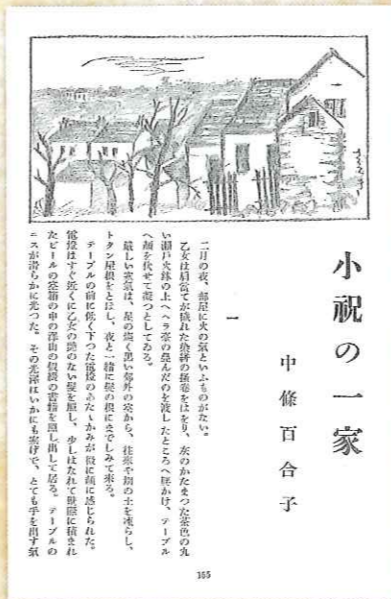 小祝の一家
中條百合子
一
二月の夜、部屋に火の気といふものがない。
乙女は肩当てが穢れた染絣の掻巻をはをり、灰のかたまつた茶色の丸
い瀬戸火鉢の上へヘラ台の畳んだのを渡したところへ腰かけ、テーブル
へ顔を伏せて凝つとしてゐる。
厳しい寒気は、星の燦く黒い郊外の空から、往来や畑の土を凍らし、
トタン屋根をとほし、夜と一緒に髪の根にまでしみて来る。
テーブルの前に低く下つた電燈のあたゝかみが微に顔に感じられた。
電燈はすぐ近くに乙女の艶のない髪を照し、少しはなれて壁際に積まれ
たビールの空箱の中の沢山の仮綴の書籍を照し出して居る。テーブルの
ニスが滑らかに光つた。その光沢はいかにも寒げで、とても手を出す気
155